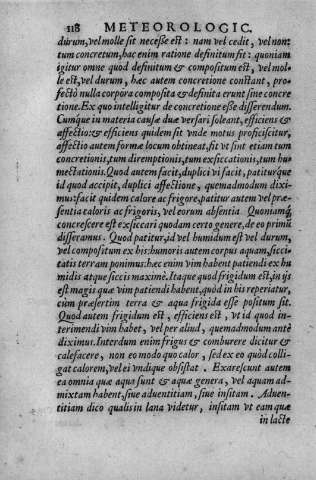 518 METEOROLOGIC.
durum, vel molle sit necesse est: nam vel cedit, vel non:
tum concretum, hac enim ratione definitum sit: quoniam
igitur omne quod definitum & compositum est, vel mol-
le est, vel durum, hæc autem concretione constant, pro-
fectò nulla corpora composita & definita erunt sine concre
tione. Ex quo intelligitur de concretione esse disserendum.
Cumque in materia causæ duæ versari soleant, efficiens &
affectio: & efficiens quidem sit vnde motus proficiscitur,
affectio autem formæ locum obtineat, fit vt sint etiam tum
concretionis, tum diremptionis, tum exsiccationis, tum hu
mectationis. Quod autem facit, duplici vi facit, patiturque
id quod accipit, duplici affectione, quemadmodum dixi-
mus: facit quidem calore ac frigore, patitur autem vel præ-
sentia caloris ac frigoris, vel eorum absentia. Quoniamq́;
concrescere est exsiccari quodam certo genere, de eo primũ
disseramus. Quod patitur, id vel humidum est vel durum,
vel compositum ex his: humoris autem corpus aquam, sicci-
tatis terram ponimus: hæc enim vim habent patiendi ex hu
midis atque siccis maximè. Itaque quod frigidum est, in ijs
est magis quæ vim patiendi habent, quòd in his reperiatur,
cùm præsertim terra & aqua frigida esse positum sit.
Quod autem frigidum est, efficiens est, vt id quod in-
terimendi vim habet, vel per aliud, quemadmodum antè
diximus. Interdum enim frigus & comburere dicitur &
calefacere, non eo modo quo calor, sed ex eo quòd colli-
gat calorem, vel ei vndique obsistat. Exarescunt autem
ea omnia quæ aqua sunt & aquæ genera, vel aquam ad-
mixtam habent, siue aduentitiam, siue insitam. Aduen-
titiam dico qualis in lana videtur, insitam vt eam quæ
in lacte